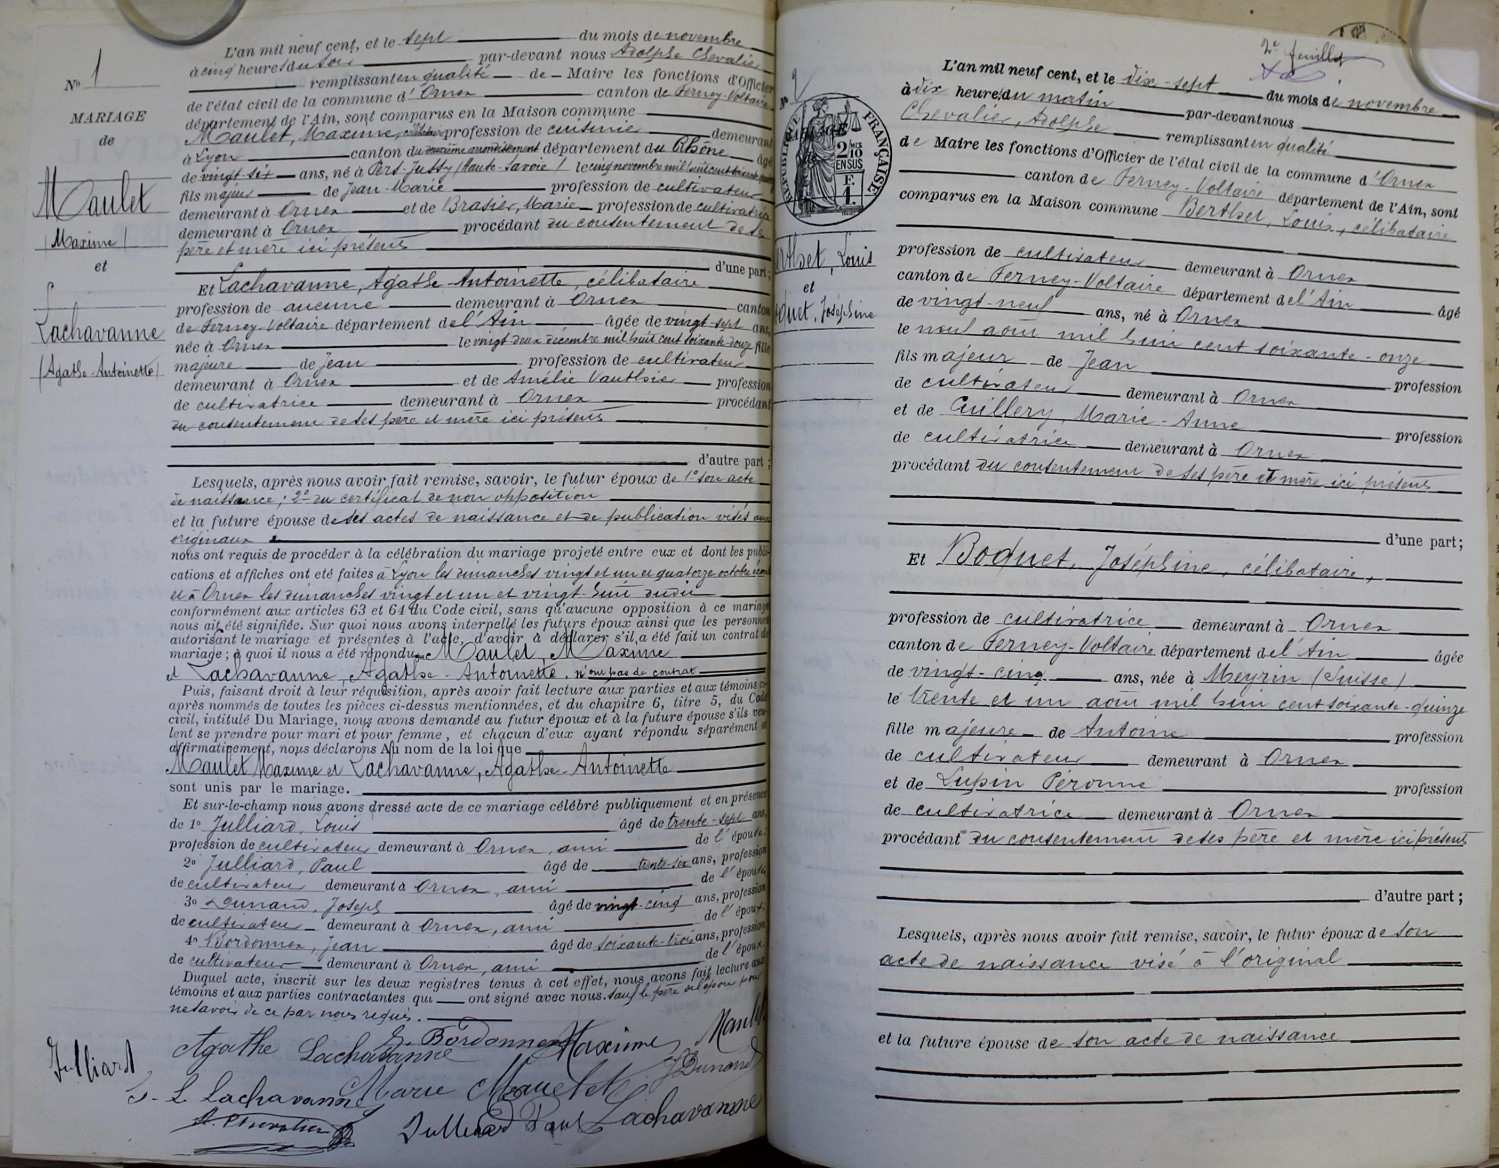 Nº 1
MARIAGE
de
Maulet
(Maxime)
et
Lachavanne
(Agathe-Antoinette)
L'an mil neuf cent, et le sept du mois de novembre
à cinq heures du soir par-devant nous Adolphe Chevalier
remplissant en qualité de Maire les fonctions d'Officier
de l'état civil de la commune d'Ornex canton de Ferney-Voltaire
département de l'Ain, sont comparus en la Maison commune
Maulet, Maxime, profession de cuisinier demeurant
à Lyon canton du deuxième arrondissement département du Rhône âgé
de vingt six ans, né à Pers-Jussy (Haute-Savoie) le cinq novembre mil huit cent
fils majeur de Jean-Marie profession de cultivateur
demeurant à Ornex et de Brasier, Marie profession de cultivatrice
demeurant à Ornex procédant du consentement de ses
père et mère ici présents
d'une part ;
Et Lachavanne, Agathe-Antoinette, célibataire
profession de aucune demeurant à Ornex canton
de Ferney-Voltaire département de l'Ain âgée de vingt-sept ans,
née à Ornex le vingt deux décembre mil huit cent soixante douze fille
majeure de Jean profession de cultivateur
demeurant à Ornex et de Amélie Vauthier profession
de cultivatrice demeurant à Ornex procédant
du consentement de ses père et mère ici présents
d'autre part ;
Lesquels, après nous avoir fait remise, savoir, le futur époux de 1º son acte
de naissance ; 2º du certificat de non opposition
et la future épouse de ses actes de naissance et de publication visés aux
originaux
nous ont requis de procéder à la célébration du mariage projeté entre eux et dont les publi-
cations et affiches ont été faites à Lyon les dimanches vingt et un et quatorze octobre
et à Ornex les dimanches vingt et un et vingt-huit dudit
conformément aux articles 63 et 64 du Code civil, sans qu'aucune opposition à ce mariage
nous ait été signifiée. Sur quoi nous avons interpellé les futurs époux ainsi que les personnes
autorisant le mariage et présentes à l'acte, d'avoir à déclarer s'il a été fait un contrat de
mariage ; à quoi il nous a été répondu Maulet, Maxime
et Lachavanne, Agathe-Antoinette, n'ont pas de contrat
Puis, faisant droit à leur réquisition, après avoir fait lecture aux parties et aux témoins ci-
après nommés de toutes les pièces ci-dessus mentionnées, et du chapitre 6, titre 5, du Code
civil, intitulé Du Mariage, nous avons demandé au futur époux et à la future épouse s'ils veu-
lent se prendre pour mari et pour femme, et chacun d'eux ayant répondu séparément et
affirmativement, nous déclarons Au nom de la loi que
Maulet Maxime et Lachavanne, Agathe Antoinette
sont unis par le mariage.
Et sur-le-champ nous avons dressé acte de ce mariage célébré publiquement et en présence
de 1º Julliard, Louis âgé de trente-sept ans,
profession de cultivateur demeurant à Ornex, ami de l'épouse
2º Julliard, Paul âgé de trente-six ans, profession
de cultivateur demeurant à Ornex, ami de l'épouse,
3º Dunand, Joseph âgé de vingt-cinq ans, profession
de cultivateur demeurant à Ornex, ami de l'époux
4º Bordonnex, Jean âgé de soixante-trois ans, profession
de cultivateur demeurant à Ornex, ami de l'époux
Duquel acte, inscrit sur les deux registres tenus à cet effet, nous avons fait lecture aux
témoins et aux parties contractantes qui ont signé avec nous. Sauf le père de l'époux pour
ne savoir de ce par nous requis.
Julliard Agathe Lachavanne Bordonnex Maxime Maulet
Lachavanne Marie Maulet J Dunand
A. Chevalier Julliard Paul Lachavanne
2e feuillet
Nº 2
RÉPUBLIQUE FRANÇAISE
2/10
EN SUS
F.
1.
Berthet, Louis
et
Boquet, Joséphine
L'an mil neuf cent, et le dix-sept du mois de novembre
à dix heures du matin par-devant nous
Chevalier, Adolphe remplissant en qualité
de Maire les fonctions d'Officier de l'état civil de la commune d'Ornex
canton de Ferney-Voltaire département de l'Ain, sont
comparus en la Maison commune Berthet, Louis, célibataire
profession de cultivateur demeurant à Ornex
canton de Ferney-Voltaire département de l'Ain âgé
de vingt-neuf ans, né à Ornex
le neuf aout mil huit cent soixante-onze
fils majeur de Jean profession
de cultivateur demeurant à Ornex
et de Cuillery, Marie-Anne profession
de cultivatrice demeurant à Ornex
procédant du consentement de ses père et mère ici présents
d'une part ;
Et Boquet, Joséphine, célibataire,
profession de cultivatrice demeurant à Ornex
canton de Ferney-Voltaire département de l'Ain âgée
de vingt-cinq ans, née à Meyrin (Suisse)
le trente et un aout mil huit cent soixante-quinze
fille majeure de Antoine profession
de cultivateur demeurant à Ornex
et de Lupin Péronne profession
de cultivatrice demeurant à Ornex
procédant du consentement de ses père et mère ici présents
d'autre part ;
Lesquels, après nous avoir fait remise, savoir, le futur époux de son
acte de naissance visé à l'original
et la future épouse de son acte de naissance